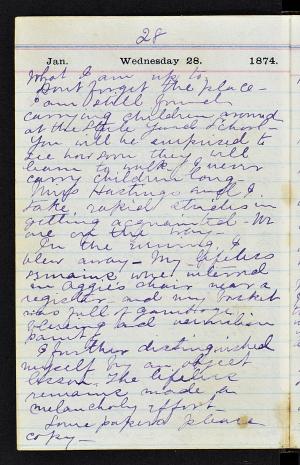 28
Jan. Wednesday 28. 1874.
What I am up to.
Dont forget the place -
am still found
carrying children around
at the State Fund School -
You will be surprised to
see how soon they will
learn to walk I never
carry children long.
Miss Hastings and I
take rapid strides in
getting acquainted - We
are on the way.
In the evening I
blew away - My lifeless
remains were interred
in Aggies chair near a
register and my basket
was full of gamboge
and vermilion
paint.
I further distinguished
myself by an object
lesson. The lifeless
remains made a
melancholy effort -
Some papers please
copy -